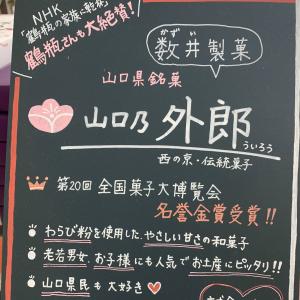 NHK
「鶴瓶の家族に乾杯」
鶴瓶さんも大絶賛!
かずい
数井製菓
山口県銘菓
山口乃 外郎
ういろう
西の京・伝統菓子
第20回 全国菓子大博覧会
名誉金賞受賞!!
わらび粉を使用した、やさしい甘さの和菓子
老若男女、お子様にも人気でお土産にピッタリ!!
山口県民も大好き♡